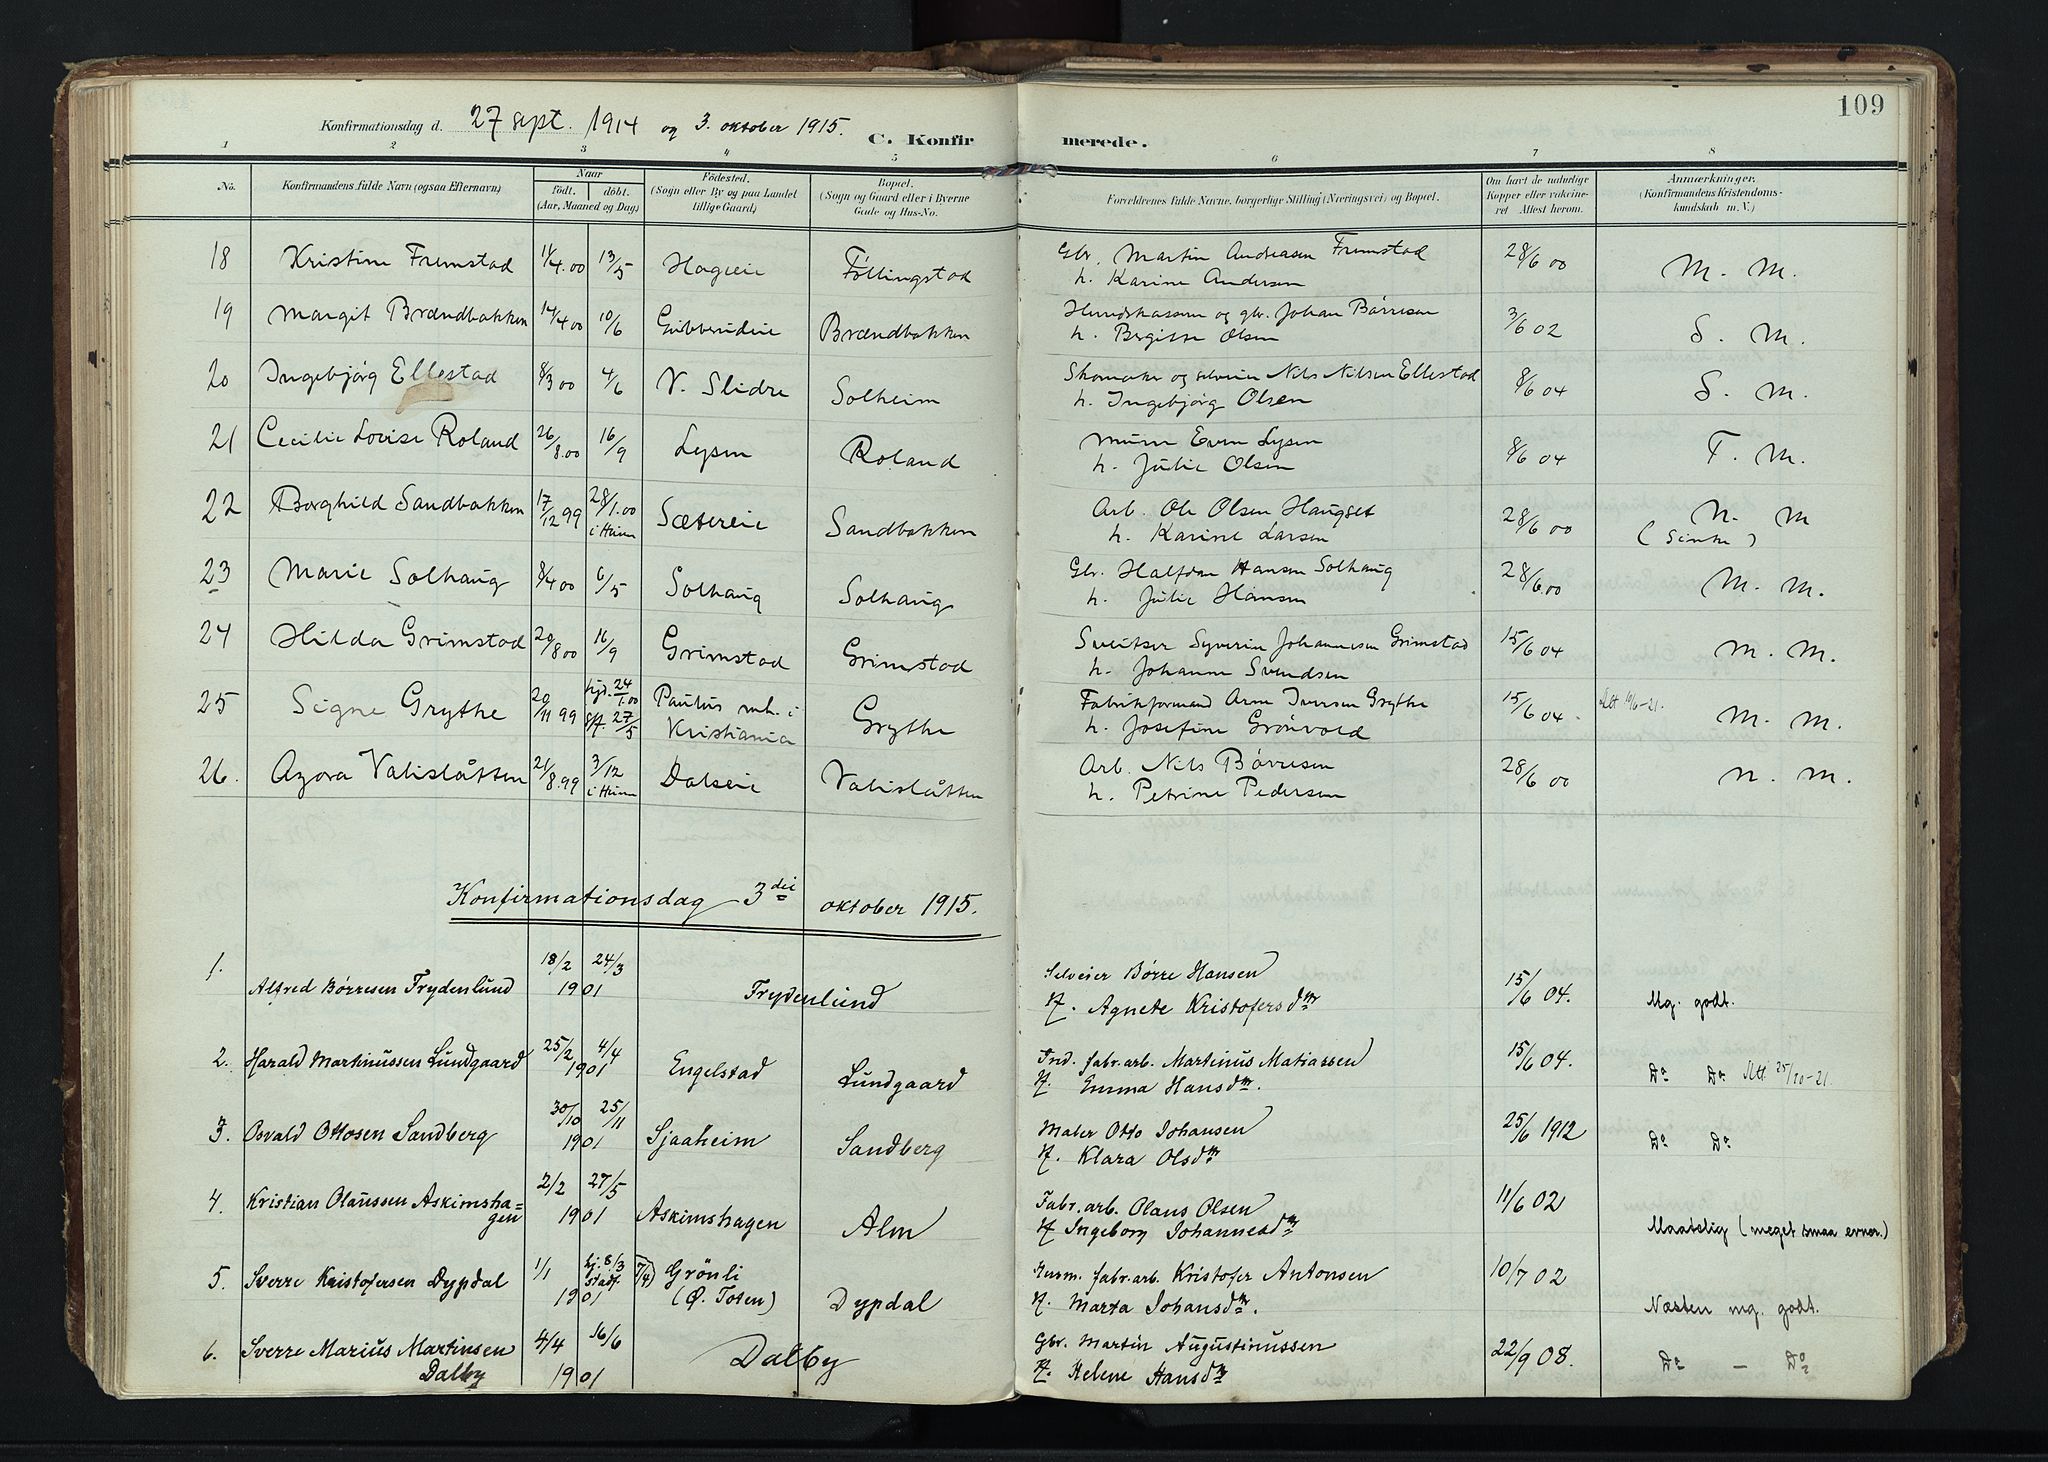 109
Konfirmationsdag d. 27 sept. 1914 og 3. oktober 1915.
C. Konfirmerede.
1 2 3 4 5 6 7 8
No. Konfirmandens fulde Navn (ogsaa Efternavn) Naar født. døbt. (Aar, Maaned og Dag) Fødested. (Sogn eller By og paa Landet tillige Gaard) Bopæl. (Sogn og Gaard eller i Byerne Gade og Hus-No. Forældrenes fulde Navne, borgerlige Stilling (Næringsvei) og Bopæl. Om havt de naturlige Kopper eller vakcineret. Attest herom. Anmærkninger. (Konfirmandens Kristendomskundskab m. V.)
18 Kristine Fremstad 11/4.00 13/5 Hageeie Føllingstad Gbr. Martin Andreasen Fremstad 28/6 00 M. M.
h. Karine Andersen
19 Margit Brændbakken 14/4 00 10/6 Gubberudeie Brændbakken og gbr. Johan Børresen 3/6 02 S. M.
h. Bergitte Olsen
20 Ingebjørg Ellestad 8/3 00 4/6 V. Slidre Solheim Skomaker og selveier Nils Nilsen Ellestad 8/6 04 S. M.
h. Ingebjørg Olsen
21 Cecilie Lovise Roland 26/8.00 16/9 Lysen Roland Murer Even Lysen 8/6 04 T. M.
h. Julie Olsen
22 Borghild Sandbakken 17/12 99 28/1.00 i Hjem Sætereie Sandbakken Arb. Ole Olsen Haugset 28/6 00 N. M
h. Karine Larsen (Sinke)
23 Marie Solhaug 8/4 00 6/5 Solhaug Solhaug Gbr. Halfdan Hansen Solhaug 28/6.00 M. M.
h. Julie Hansen
24 Hilda Grimstad 20/8 00 16/9 Grimstad Grimstad Sveitser Syverin Johannesen Grimstad 15/6 04 M. M.
h. Johanne Svendsen
25 Signe Grythe 20/11 99 hjd. 24/1.00 stf. 27/5 Paulus mh. i Kristiania Grythe Fabrikformand Arne Iversen Grythe 15/6 04. Att 19/6-21. M. M.
h. Josefine Grönvold
26. Agora Valislåtten 21/8.99 3/12 i Hjem Dalseie Valislåtten Arb. Nils Børresen 28/6 00 N. M.
h. Petrine Pedersen
Konfirmationsdag 3die oktober 1915.
1. Alfred Börresen Frydenlund 18/2 1901 24/3 Frydenlund Selveier Börre Hansen 15/6 04. Mg. godt.
H. Agnete Kristofersdtr
2. Harald Martinussen Lundgaard 25/2 1901 4/4 Engelstad Lundgaard Ind. fabr.arb. Martinus Matiassen 15/6 04. Do Do Att. 25/10-21.
H. Emma Hansdtr.
3. Osvald Ottosen Sandberg 30/10 1901 25/11 Sjaaheim Sandberg Maler Otto Johansen 25/6 1912 Do Do
H. Klara Olsdtr
4. Kristian Olaussen Askimshagen 2/2 1901 27/5 Askimshagen Alm Fabr.arb. Olaus Olsen 11/6 02 Maadelig (meget smaa evner.)
H Ingeborg Johannesdtr
5. Sverre Kristofersen Dypdal 1/1 1901 hj. 8/3 stadf. 7/4) Grönli (Ø. Toten) Dypdal Husm. fabr.arb. Kristofer Antonsen 10/7 02 Næsten mg. godt.
H. Marta Johansdtr.
6. Sverre Marius Martinsen Dalby 4/4 1901 16/6 Dalby Gbr. Martin Augustinussen 22/9 08. Do - Do
H. Helene Hansdtr